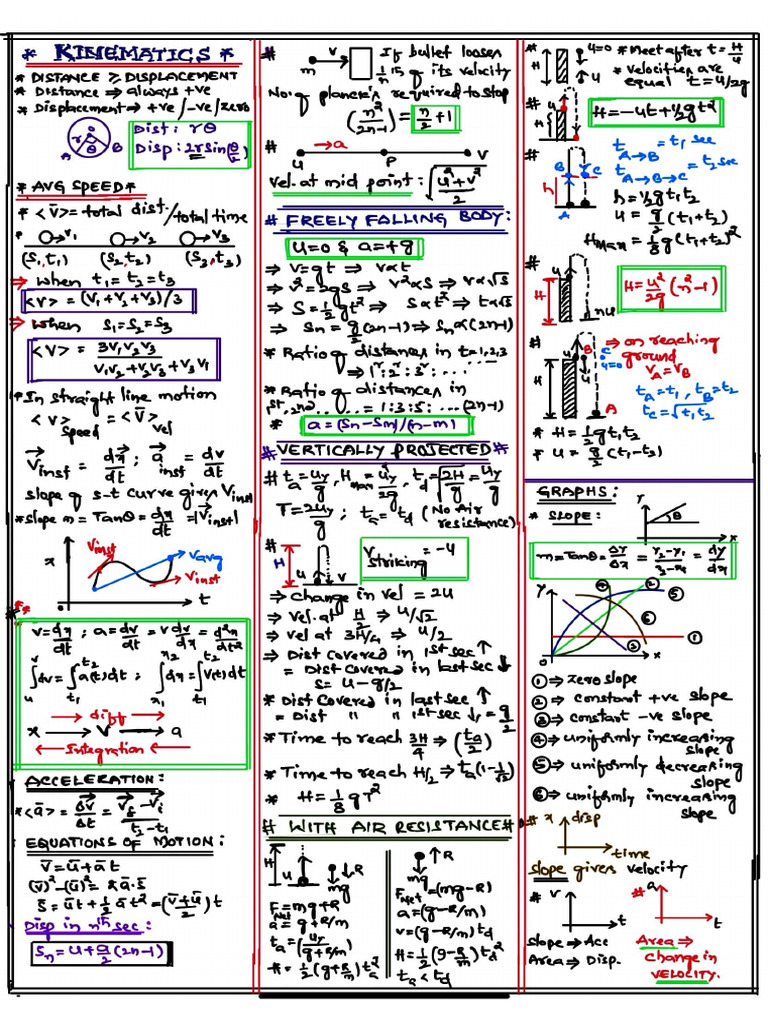 * KINEMATICS *
* DISTANCE ≥ DISPLACEMENT
* Distance ⇒ always +ve
* Displacement ⇒ +ve/-ve/zero
r θ A B
Dist: rθ
Disp: 2r sin(θ/2)
* AVG SPEED *
* <v̄> = total dist./total time
→v₁ →v₂ →v₃
(S₁,t₁) (S₂,t₂) (S₃,t₃)
⇒ when t₁=t₂=t₃
<v> = (v₁+v₂+v₃)/3
⇒ when S₁=S₂=S₃
<v> = 3v₁v₂v₃/v₁v₂+v₂v₃+v₃v₁
* In straight line motion
<v>speed = <v̄>vel
v⃗inst = dx⃗/dt ; a⃗inst = dv⃗/dt
slope of s-t curve gives Vinst
* slope m = Tanθ = dx/dt = |v⃗inst|
x Vinst Vavg Vinst
o t
v=dx/dt ; a=dv/dt = v dv/dx = d²x/dt²
∫ᵤᵛdv = ∫t₁^t₂ a(t)dt ; ∫x₁^x₂ dx = ∫t₁^t₂ v(t)dt
→ diff →
x → v → a
← Integration ←
ACCELERATION:
* <ā> = Δv⃗/Δt = v⃗f-v⃗i/t₂-t₁
EQUATIONS OF MOTION:
v̄ = ū+āt
(v̄)²-(ū)² = 2ā.s̄
s̄ = ūt+½āt² = (v̄+ū/2)t
Disp in nth sec:
Sn = u+a/2(2n-1)
# m v If bullet looses
1/n th of its velocity
No. of planck's required to stop
(n²/2n-1) = n/2+1
# → a
u P v
Vel. at mid point: √(u²+v²/2)
# FREELY FALLING BODY:
u=0 & a=+g
⇒ v=gt ⇒ v∝t
⇒ v²=2gS ⇒ v²∝S ⇒ v∝√S
⇒ S=½gt² ⇒ S∝t² ⇒ t∝√S
⇒ Sn = g/2(2n-1) ⇒ Sn∝(2n-1)
* Ratio of distances in t=1,2,3
⇒ 1²:2²:3²....
* Ratio of distances in
1st,2nd ... = 1:3:5:....(2n-1)
* a = (Sn-Sm)/(n-m)
# VERTICALLY PROJECTED #
# ta=uy/g, Hmax=u²y/2g, td=√(2H/g)=uy/g
T=2uy/g ; ta=td (No Air
resistance)
# H u v
Vstriking = -u
⇒ change in vel = 2u
⇒ vel. at H/2 ⇒ u/√2
⇒ vel at 3H/4 ⇒ u/2
⇒ Dist covered in 1st sec ↑
= Dist covered in last sec ↓
S= u-g/2
* Dist covered in last sec ↑
= Dist " " 1st sec ↓ = g/2
* Time to reach 3H/4 ⇒ (ta/2)
* Time to reach H/2 ⇒ ta(1-1/√2)
* H=⅛gT²
# WITH AIR RESISTANCE #
H u R mg
FNet = mg+R
a = g+R/m
ta = (uy/g+R/m)
H = ½(g+R/m)ta²
R mg
FNet = (mg-R)
a=(g-R/m)
v=(g-R/m)td
H=½(g-R/m)td²
ta<td
# H u=0 u * Meet after t=H/u
* velocities are
equal t=u/2g
# H u
H=-ut+½gt²
# B C h A
tA→B = t₁ sec
tA→B→C = t₂ sec
h=½gt₁t₂
u=g/2(t₁+t₂)
HMax=⅛g(t₁+t₂)²
# H u nu
H=u²/2g(n²-1)
# H u B C u=0 A
⇒ on reaching
ground
VA=VB
tA=t₁, tB=t₂
tC=√t₁t₂
* H=½gt₁t₂
* u=g/2(t₁-t₂)
GRAPHS:
* SLOPE: Y θ x
m=Tanθ=ΔY/Δx=Y₂-Y₁/x₂-x₁=dy/dx
Y ④ ② ⑤ ⑥ ① ③ O x
① ⇒ zero slope
② ⇒ constant +ve slope
③ ⇒ constant -ve slope
④ ⇒ uniformly increasing
slope
⑤ ⇒ uniformly decreasing
slope
⑥ ⇒ uniformly increasing
slope
# x disp
time
slope gives velocity
# v t
slope ⇒ Acc
Area ⇒ Disp.
# a t
Area ⇒
Change in
VELOCITY.